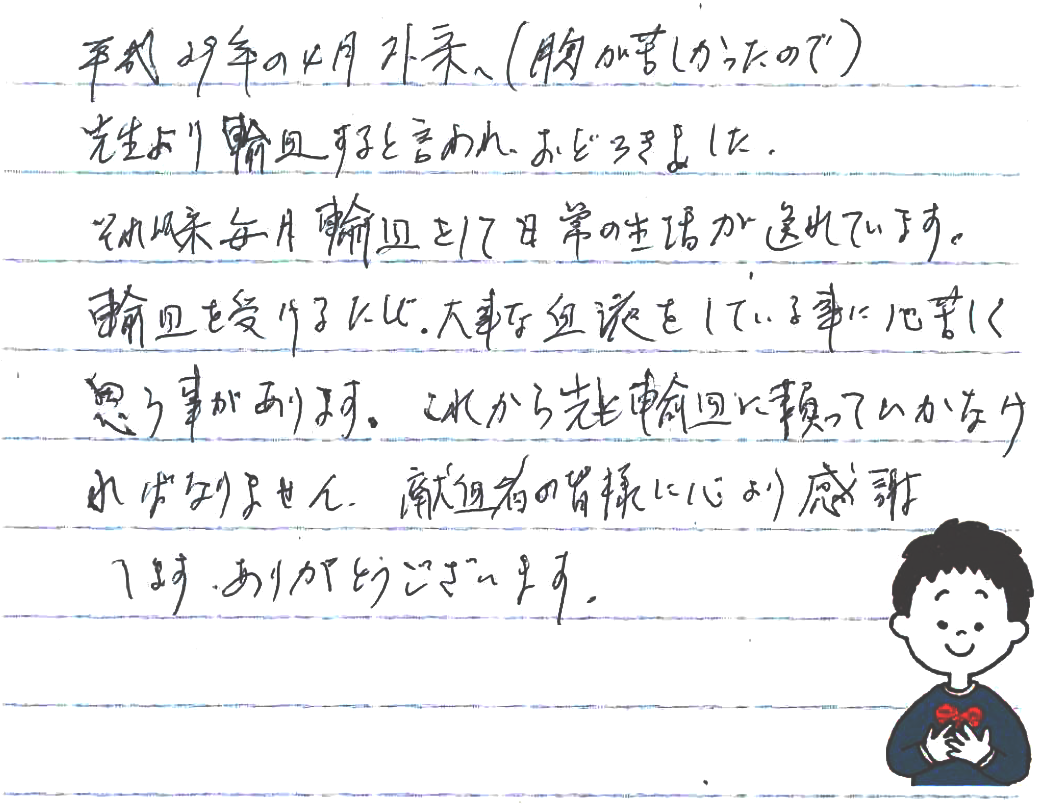 平成29年の4月外来へ(胸が苦しかったので)
先生より輸血すると言われ、おどろきました。
それ以来毎月輸血をして日常の生活が送れています。
輸血を受けるたび、大事な血液をしている事に心苦しく
思う事があります。これから先も輸血に頼っていかなけ
ればなりません。献血者の皆様に心より感謝
します。ありがとうございます。